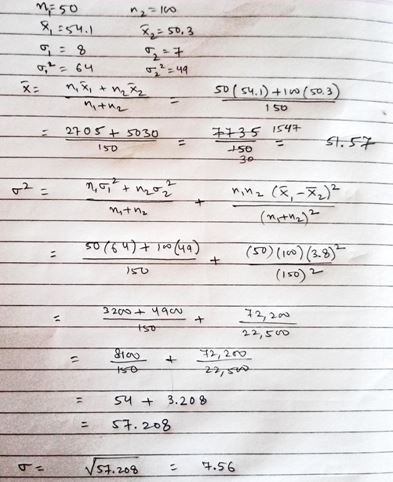 n₁=50 n₂ = 100
x̄₁ = 54.1 x̄₂ = 50.3
σ₁ = 8 σ₂ = 7
σ₁² = 64 σ₂² = 49
x̄ = (n₁x̄₁ + n₂x̄₂)/(n₁+n₂) = (50(54.1) + 100(50.3))/150
= (2705 + 5030)/150 = 7735/150 30 = 1547 51.57
σ² = (n₁σ₁² + n₂σ₂²)/(n₁+n₂) + (n₁n₂ (x̄₁ - x̄₂)²)/(n₁+n₂)²
= (50(64) + 100(49))/150 + ((50)(100)(3.8)²)/(150)²
= (3200 + 4900)/150 + 72,200/22,500
= 8100/150 + 72,200/22,500
= 54 + 3.208
= 57.208
σ = √57.208 = 7.56